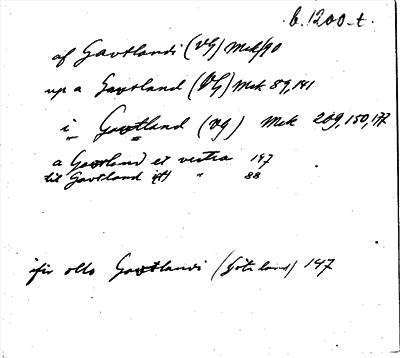 b. 1200-t.
af Gautlandi (VG) Msk 90
up a Gautland (VG) Msk 89, 141
i Gautland (VG) Msk 209, 150, 177
a Gautland et vestra 147
til Gautland " 88
ifir ollo Gautlandi (Götaland) 147